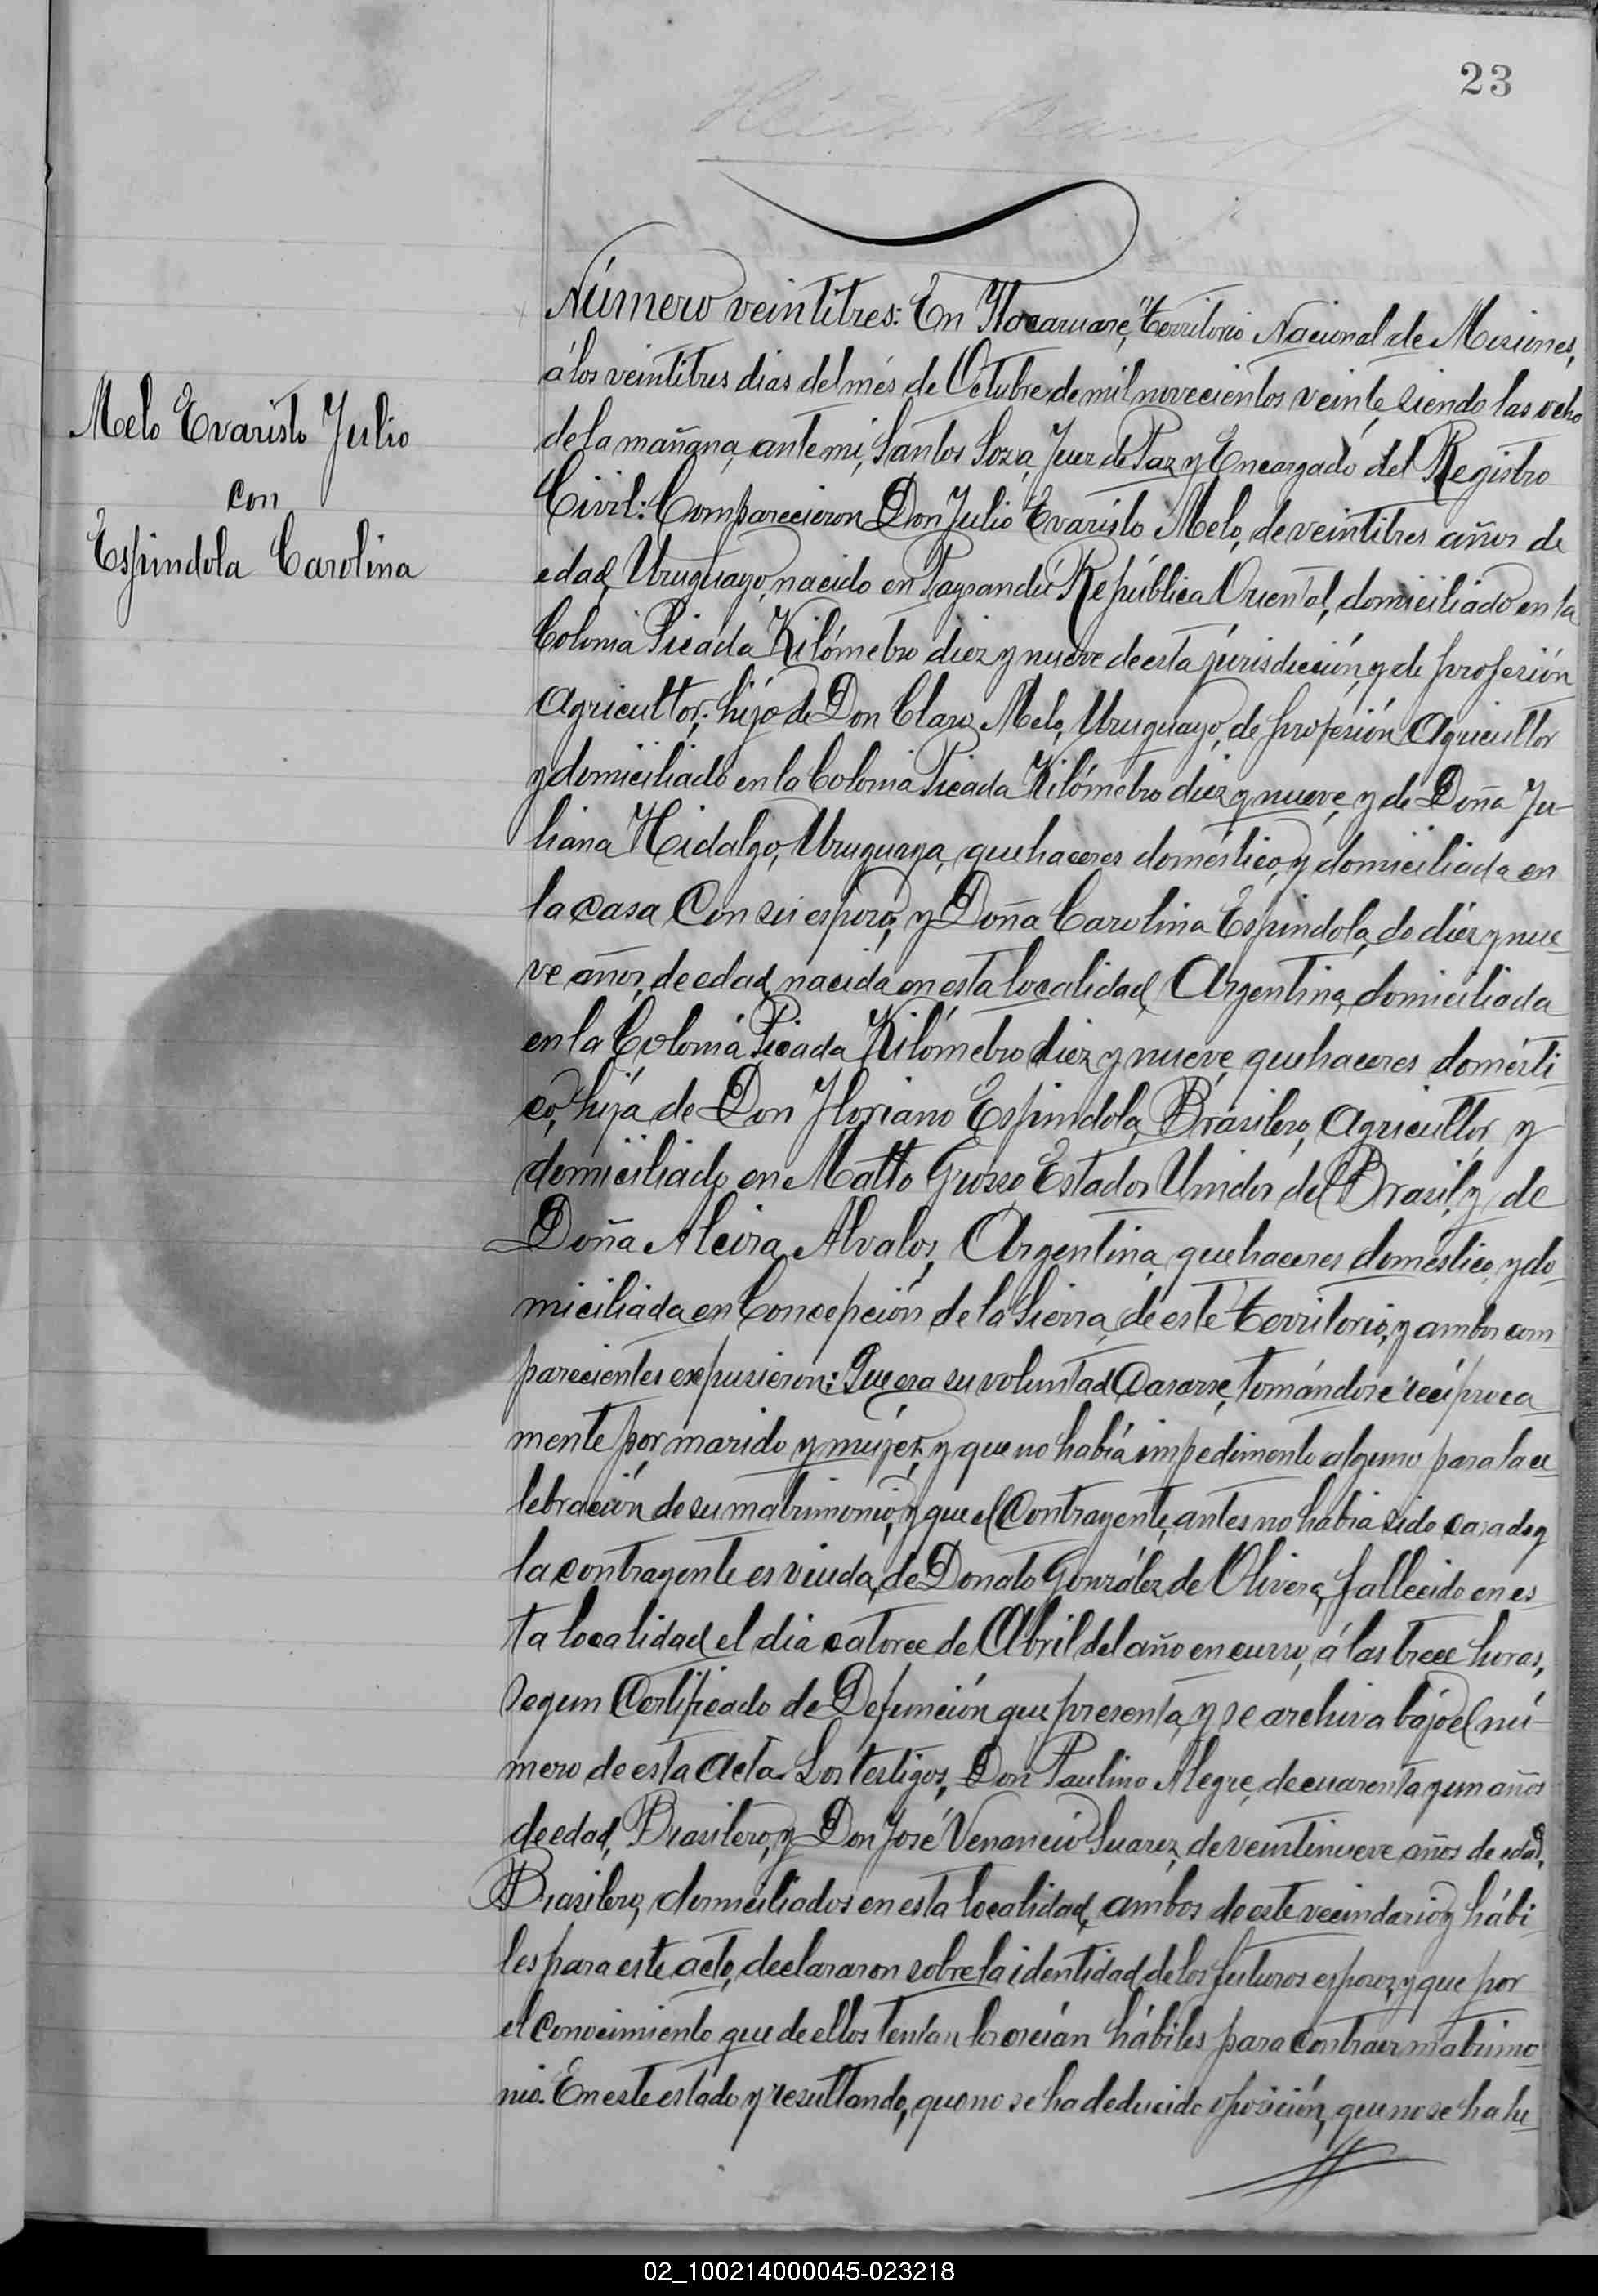 23
Melo Evaristo Julio
con
Espindola Carolina
Número veintitres: En Itacaruaré, territorio Nacional de Misiones,
á los veintitres dias del més de Octubre de mil novecientos veinte, siendo las ocho
de la mañana, ante mi, Santos Soza, Juez de Paz y Encargado del Registro
Civil: Comparecieron Don Julio Evaristo Melo, de veintitres años de
edad, Uruguayo, nacido en Paysandú República Oriental, domiciliado en la
Colonia Picada Kilómetro diez y nueve de esta jurisdicción, y de profesión
Agricultor; hijo de Don Claro Melo, Uruguayo, de profesión Agricultor
y domiciliado en la Colonia Picada Kilómetro diez y nueve, y de Doña Ju-
liana Hidalgo, Uruguaya, quehaceres doméstico, y domiciliada en
la casa Con su esposo, y Doña Carolina Espindola, de diez y nue-
ve años, de edad, nacida en esta localidad, Argentina, domiciliada
en la Colonia Picada Kilómetro diez y nueve, quehaceres domésti-
co, hija de Don Floriano Espindola, Brasilero, Agricultor, y
domiciliado en Matto Grosso Estados Unidos del Brasil, y de
Doña Alcira Alvalos, Argentina, quehaceres doméstico, y do-
miciliada en Concepción de la Sierra, de este territorio, y ambos com-
parecientes expusieron: Que era su voluntad Casarse, tomándose recíproca-
mente por marido y mujer, y que no había impedimento alguno para la ce-
lebración de su matrimonio, y que el Contrayente, antes no habia sido casado y
la contrayente es viuda, de Donato González de Olivera, fallecido en es-
ta localidad el dia catorce de Abril del año en curso, á las trece horas,
segun Certificado de Defunción que presenta, y se archiva bajo el nú-
mero de esta acta. Los testigos, Don Paulino Alegre, de cuarenta y un años
de edad, Brasilero, y Don José Venancio Suarez, de veintinueve años de edad,
Brasilero, domiciliados en esta localidad, ambos de este vecindario y hábi-
les para este acto, declararon sobre la identidad de los futuros esposos, y que por
el conocimiento que de ellos tenían los creían hábiles para contraer matrimo-
nio. En este estado y resultando, que no se ha deducido oposición, que no se ha hu-
02_100214000045-023218